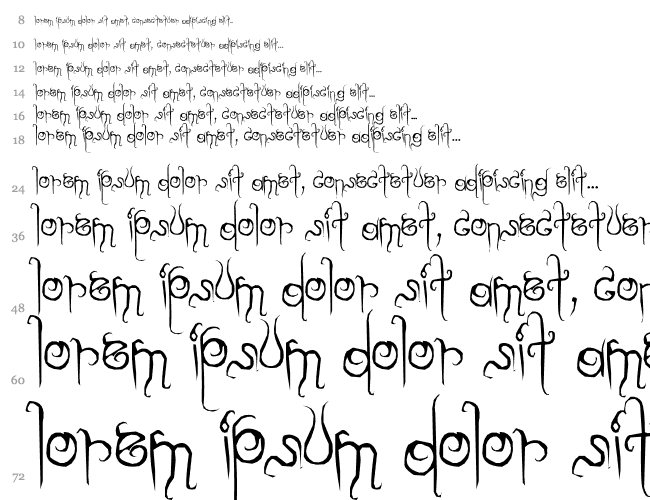 8 lorem ipsum dolor sit amet, consectetuer adipiscing elit...
10 lorem ipsum dolor sit amet, consectetuer adipiscing elit...
12 lorem ipsum dolor sit amet, consectetuer adipiscing elit...
14 lorem ipsum dolor sit amet, consectetuer adipiscing elit...
16 lorem ipsum dolor sit amet, consectetuer adipiscing elit...
18 lorem ipsum dolor sit amet, consectetuer adipiscing elit...
24 lorem ipsum dolor sit amet, consectetuer adipiscing elit...
36 lorem ipsum dolor sit amet, consectetuer
48 lorem ipsum dolor sit amet, cor
60 lorem ipsum dolor sit ame
72 lorem ipsum dolor sit